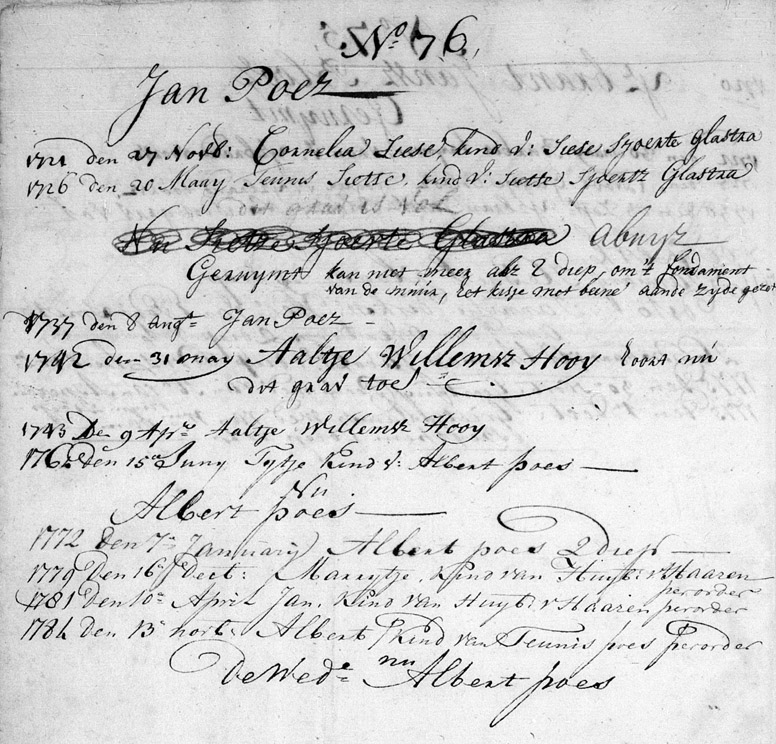 No 76,
Jan Poez
1721 den 27 Novb: Cornelia Siese, kind v: Siese Sjoerts Glastra
1726 den 20 Maay Teunis Sietse, kind v: Sietse Sjoertz Glastra
dit graf is vol
Nu Sietse Sjoerts Glastra abuys
Geruymt kan niet meer alz 2 diep, om't fondament
van de muur, het kisje met beene aande zyde gezet
1737 den 8 Augt Jan Poez
1742 den 31 may Aaltje Willemsz Hooy hoort nu
dit graf toe
1743 De 9 Apr Aaltje Willemsz Hooy
den 15n Juny Tytje kind v: Albert poes
Nu
Albert poes
1772 den 7n January Albert poes 2 diep
1779 Den 16 Decb: Marrytje, kind van Huyb: v Haaren
perorder
1781 Den 10n April Jan, kind van Huyb: v Haaren perorder
1784 den 13 novb: Albert kind van Teunis poes perorder
nu
De Wede Albert poes